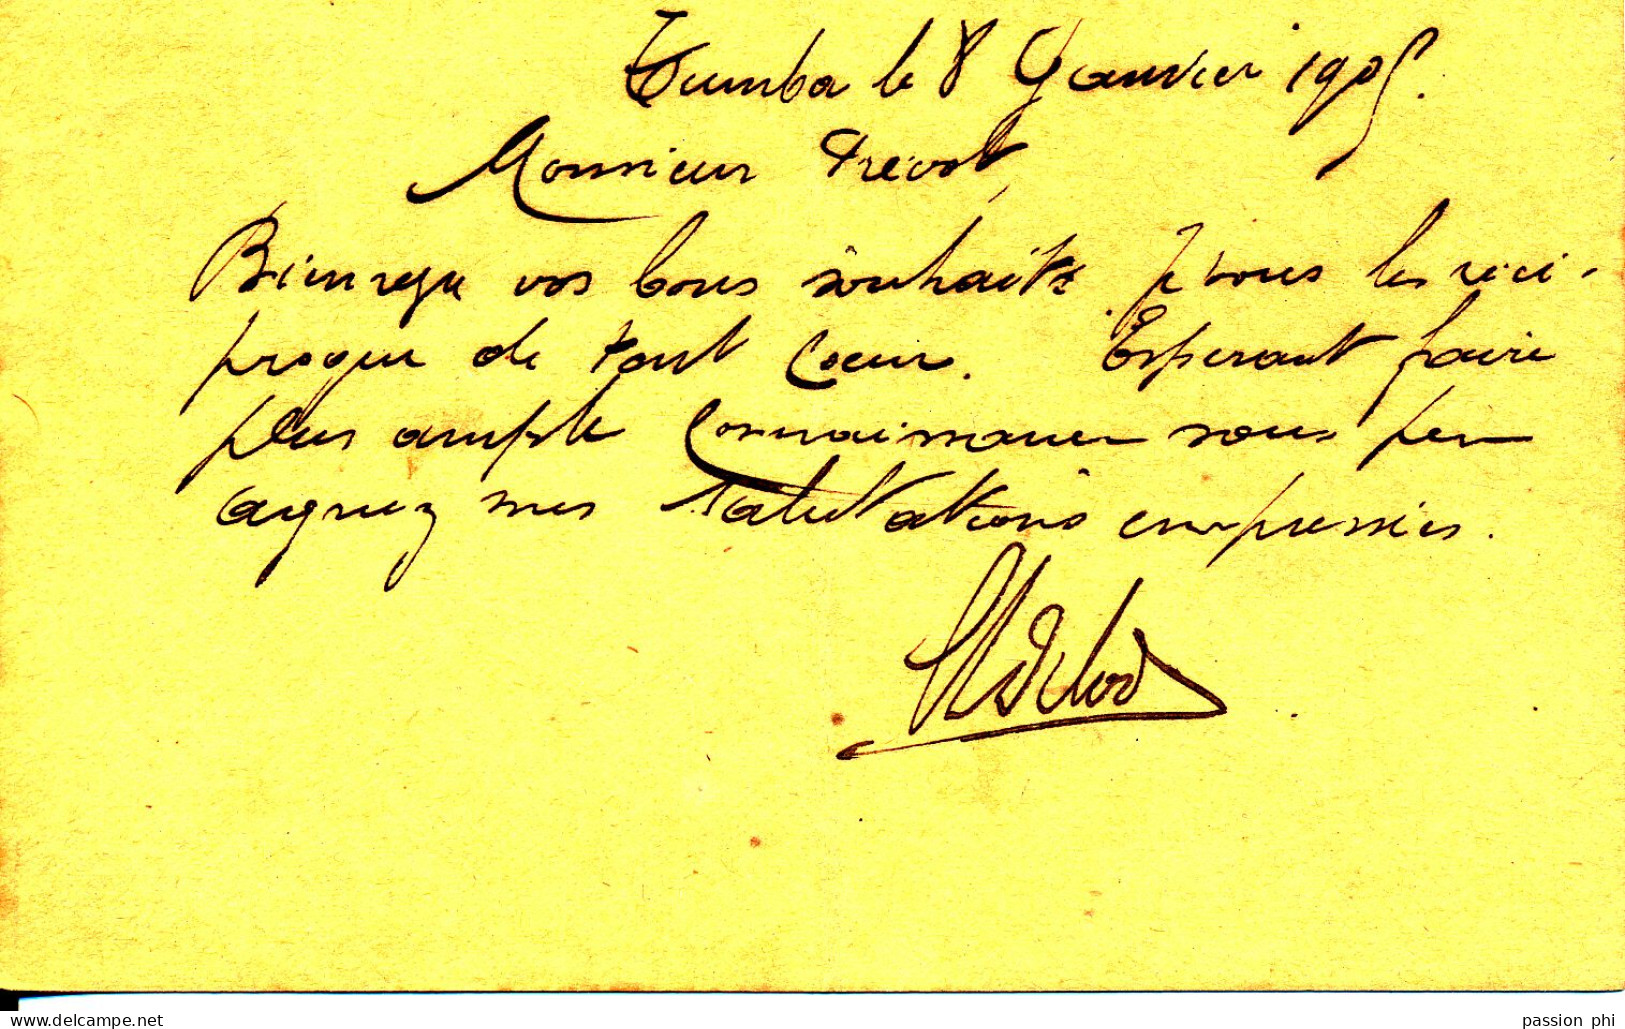 Tumba le 8 Janvier 1905.
Monsieur Prévot,
Bien reçu vos bons souhaits. Je vous les réci-
proque de tout coeur. Espérant faire
plus ample connaissance sous peu
agréez mes salutations empressées.
www.delcampe.net
passion phi